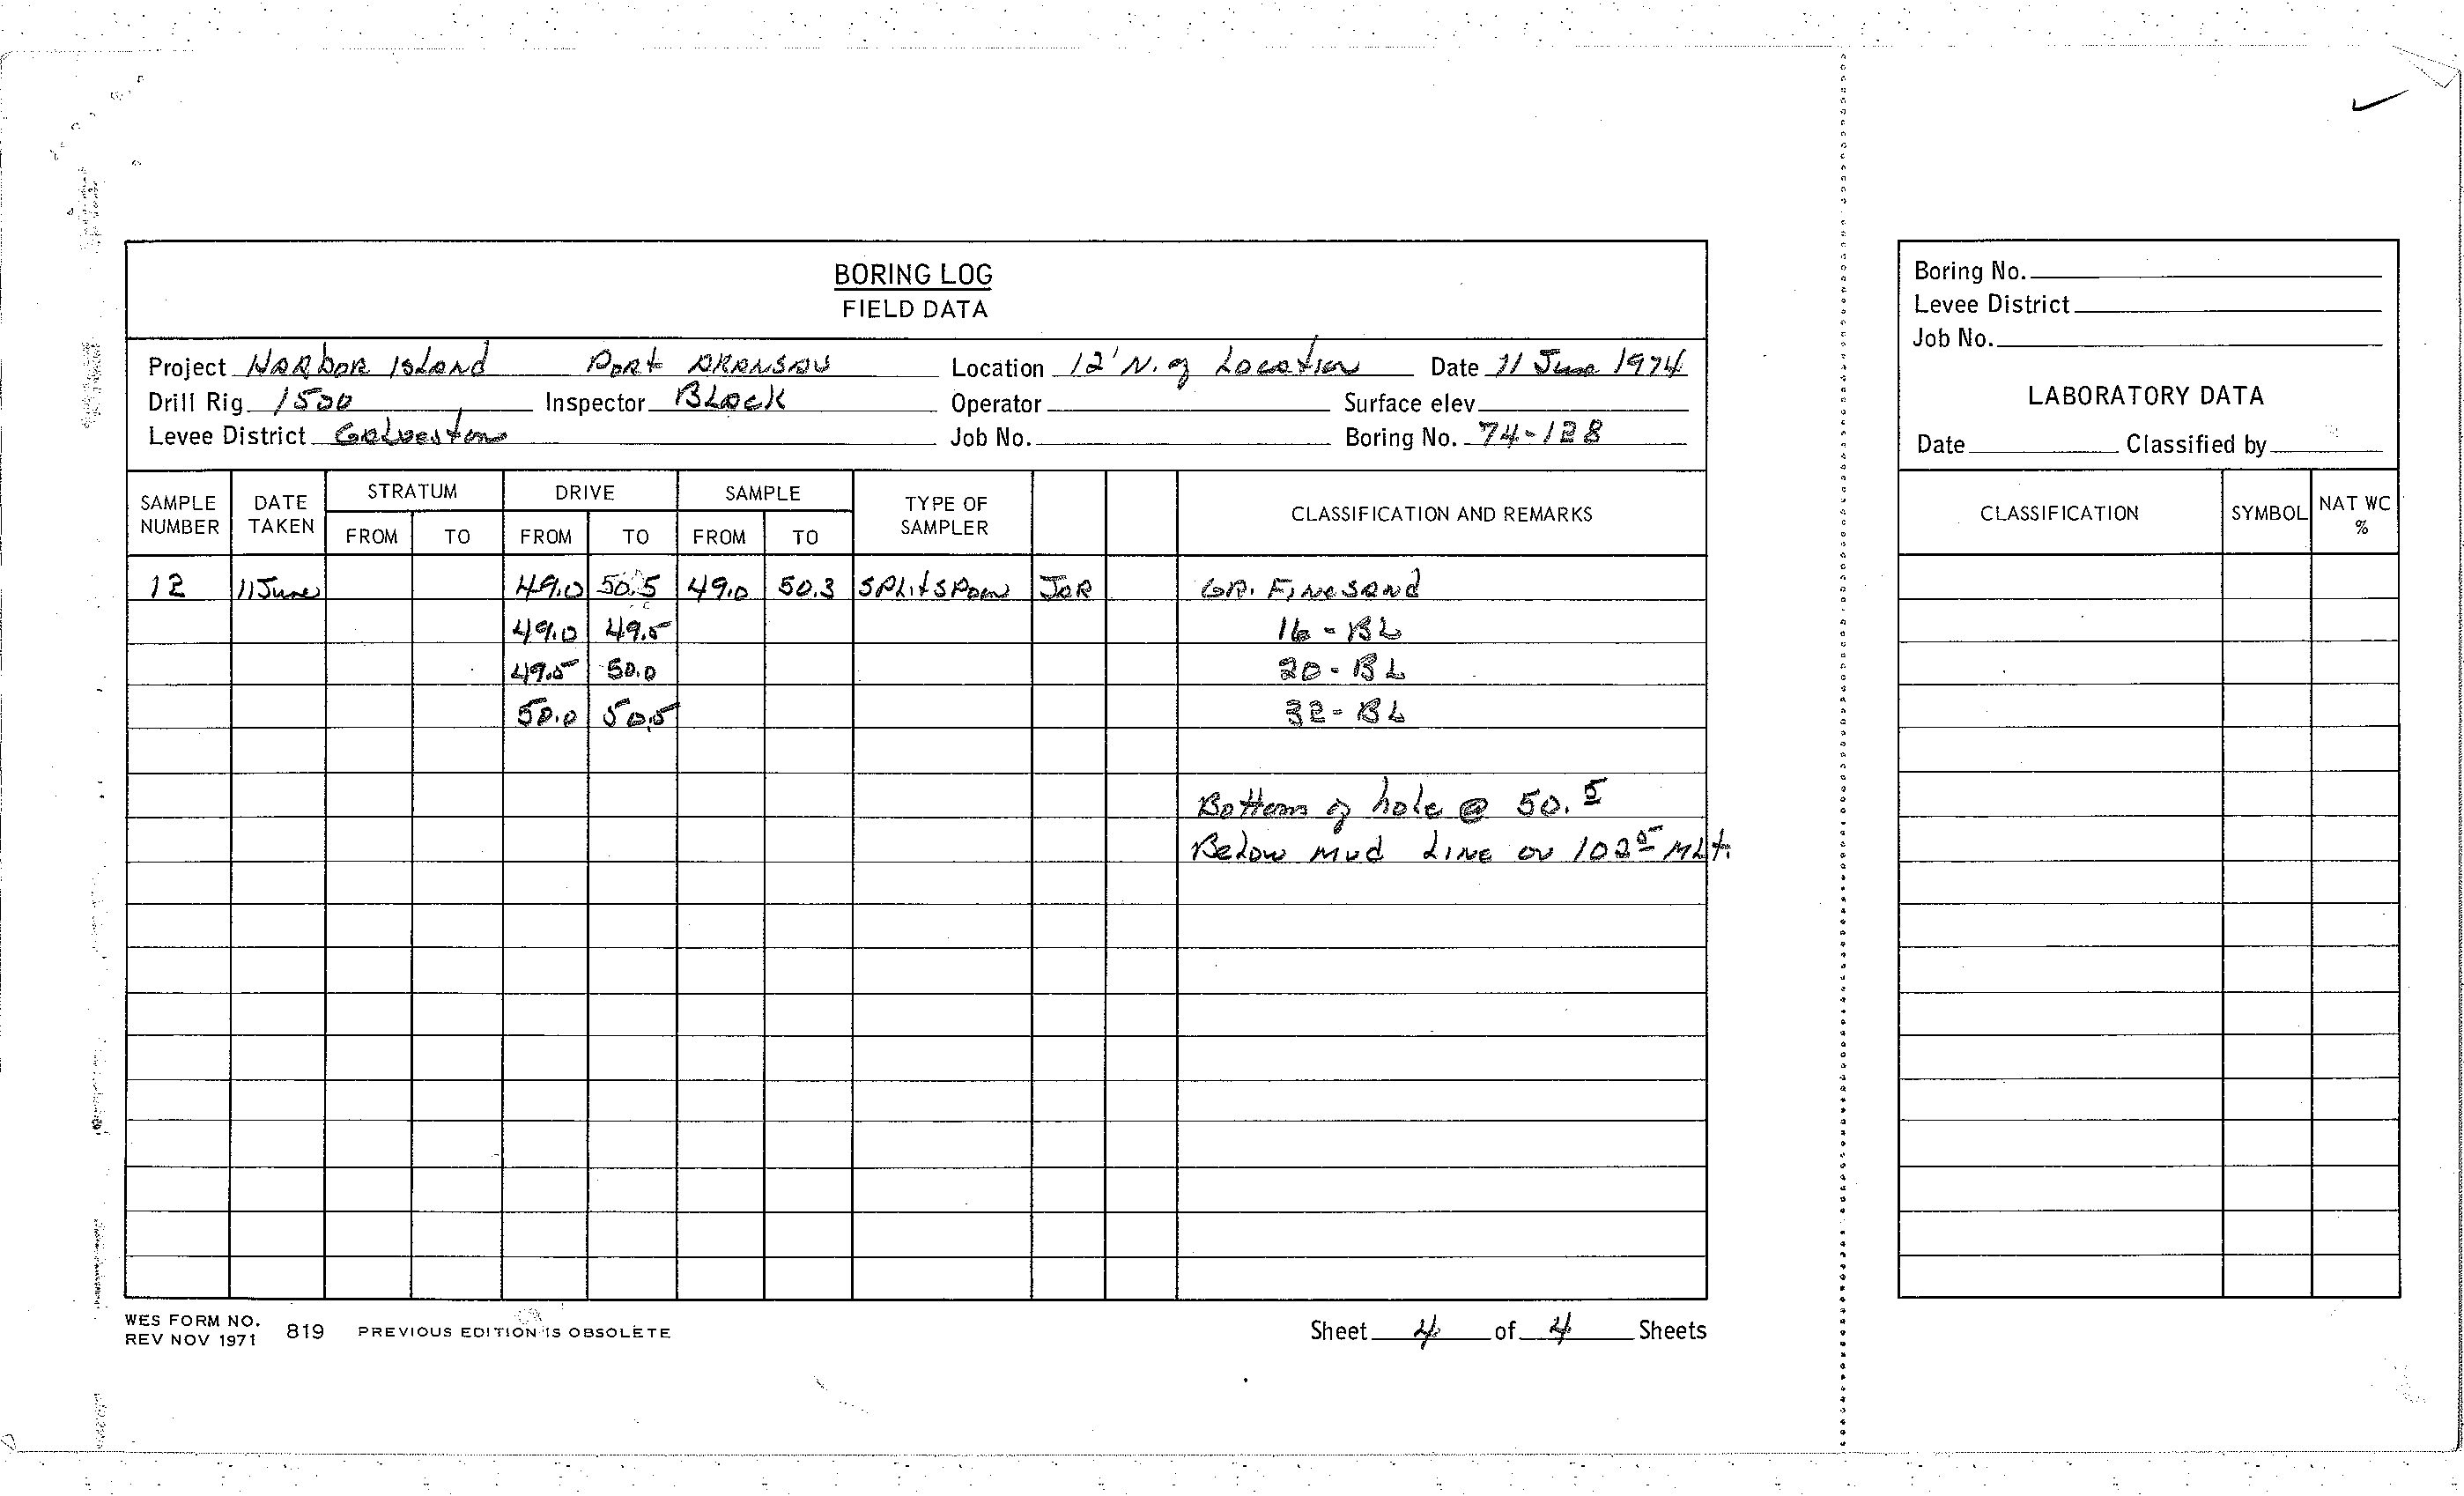 BORING LOG
FIELD DATA
Project Harbor Island Port Aransas Location 12' N. of Location Date 11 June 1974
Drill Rig 1500 Inspector Block Operator Surface elev.
Levee District Galveston Job No. Boring No. 74-128
SAMPLE NUMBER DATE TAKEN STRATUM DRIVE SAMPLE TYPE OF SAMPLER CLASSIFICATION AND REMARKS
FROM TO FROM TO FROM TO
12 11 June 49.0 50.5 49.0 50.3 Split Spoon Jar Gr. Fine Sand
49.0 49.5 16 - BL
49.5 50.0 20 - BL
50.0 50.5 32 - BL
Bottom of hole @ 50.5
Below Mud Line or 102.5 MLT.
WES FORM NO. 819 PREVIOUS EDITION IS OBSOLETE
REV NOV 1971
Sheet 4 of 4 Sheets
Boring No.
Levee District
Job No.
LABORATORY DATA
Date Classified by
CLASSIFICATION SYMBOL NAT WC %